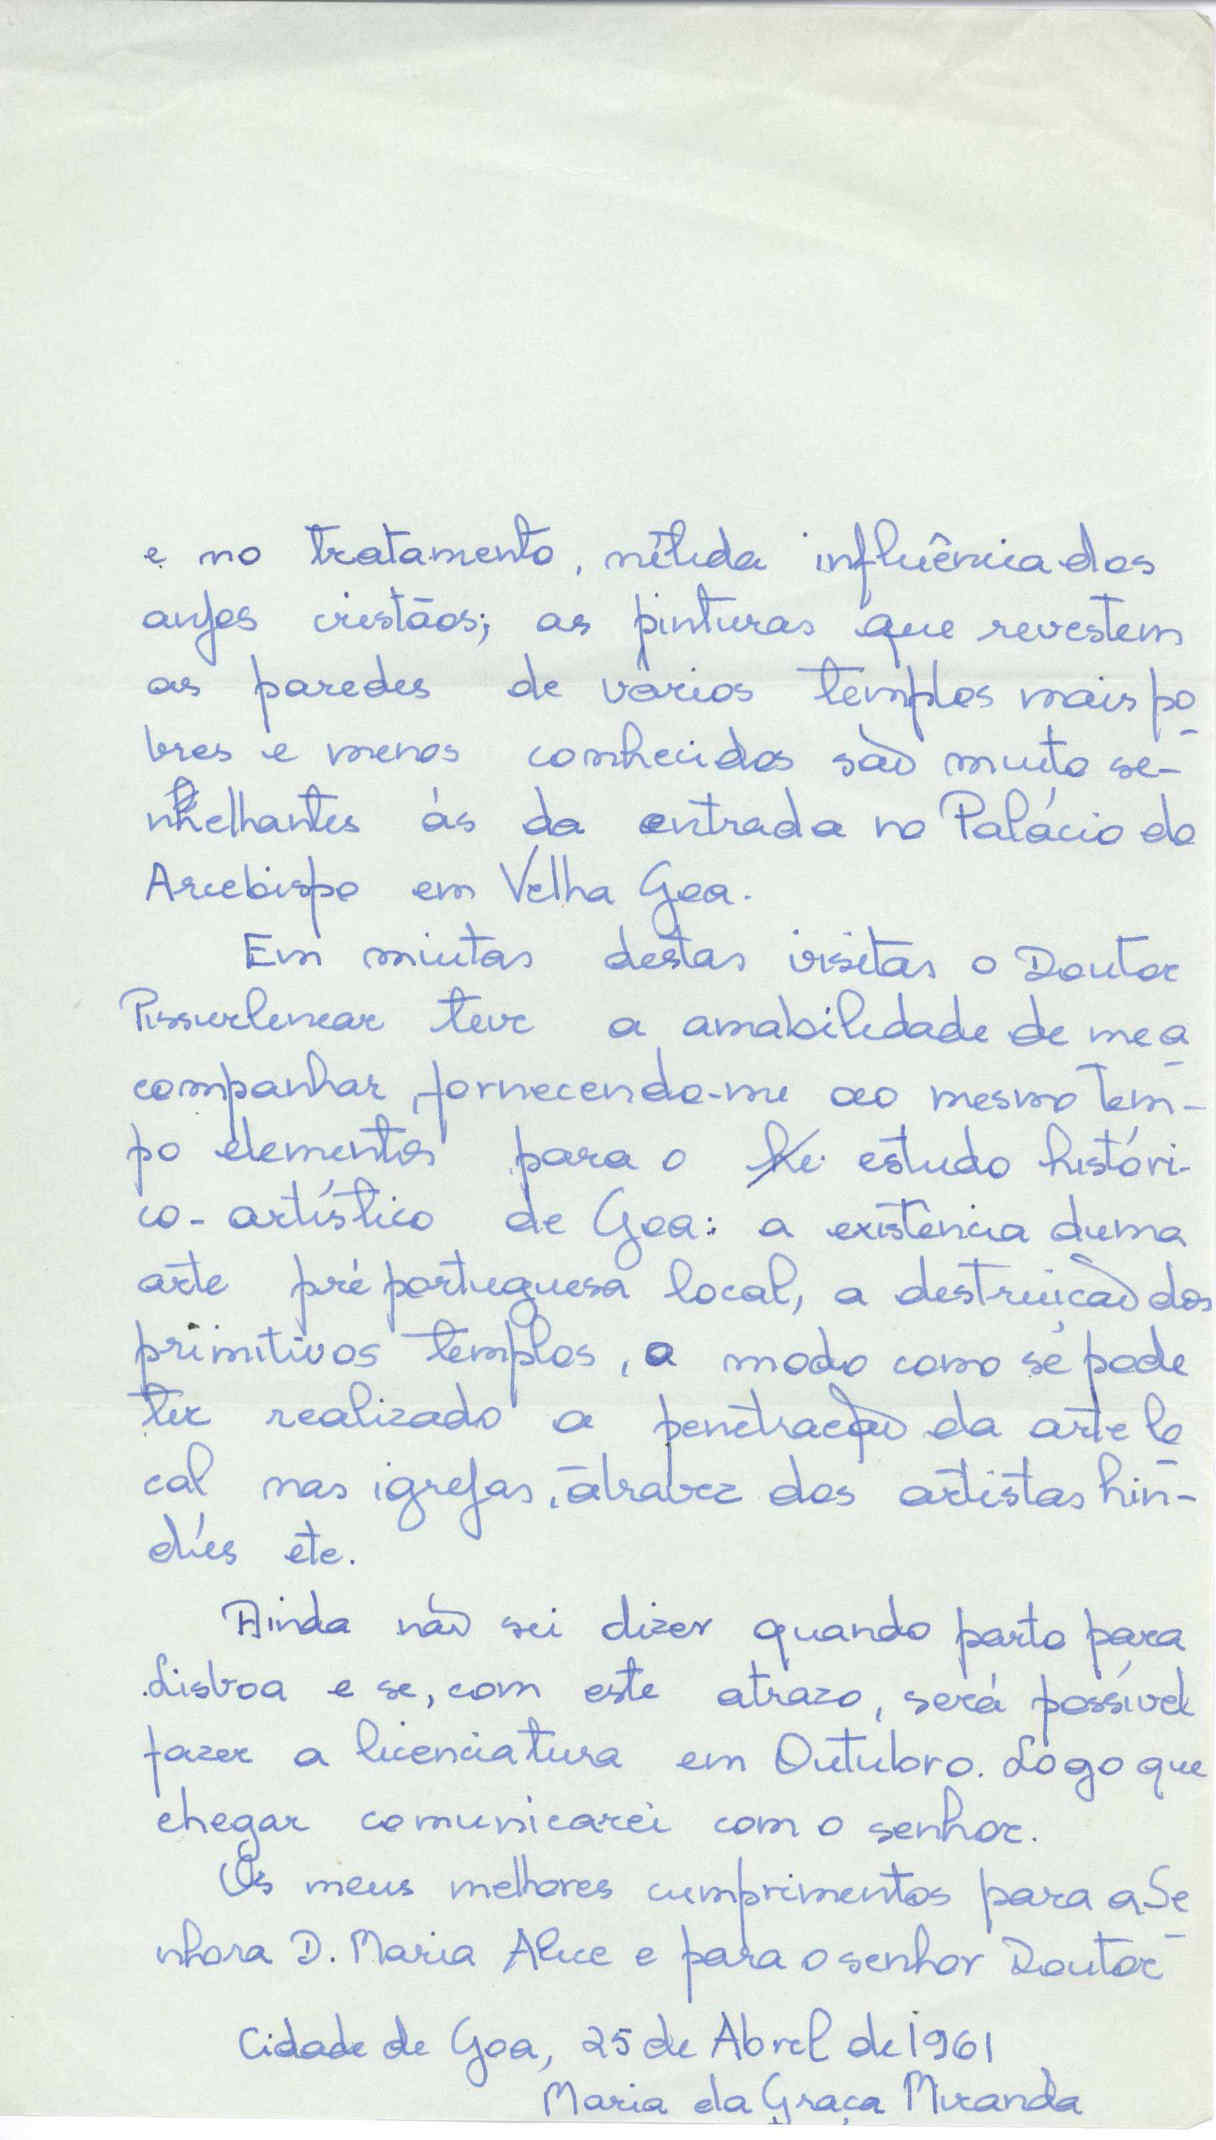 e no tratamento, nítida influência dos
anjos cristãos; as pinturas que revestem
as paredes de vários templos mais po
bres e menos conhecidos são muito se-
melhantes ás da entrada no Palácio do
Arcebispo em Velha Goa.
Em muitas destas visitas o Doutor
Pissurlencar teve a amabilidade de me a
companhar, fornecendo-me ao mesmo tem-
po elementos para o estudo históri-
co-artístico de Goa: a existência duma
arte pré portuguesa local, a destruição dos
primitivos templos, o modo como se pode
ter realizado a penetração da arte lo
cal nas igrejas, atravez dos artistas hin-
dús etc.
Ainda não sei dizer quando parto para
Lisboa e se, com este atrazo, será possível
fazer a licenciatura em Outubro. Logo que
chegar comunicarei com o senhor.
Os meus melhores cumprimentos para a Se
nhora D. Maria Alice e para o senhor Doutor
Cidade de Goa, 25 de Abril de 1961
Maria da Graça Miranda